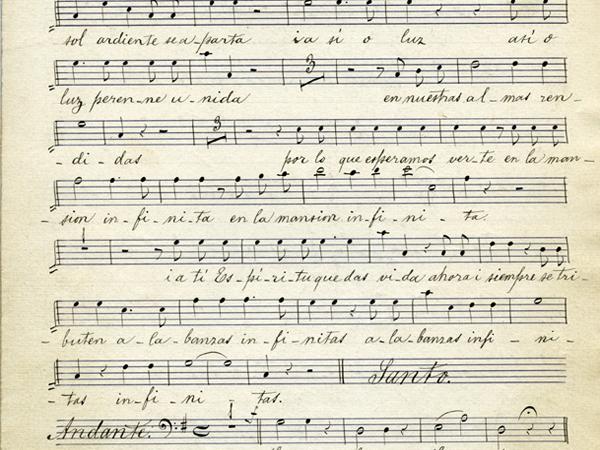 sol ardiente se a-parta i a sí o luz así o
luz peren-ne u-nida en nuestras al-mas ren-
3
3
-di-das por lo que esperamos ver-te en la man-
-sion in-fi-ni-ta en la mansion in-fi-ni-ta.
i a ti Es-pí-ri-tu que das vi-da ahora i siempre se tri-
-buten a-la-banzas in-fi-nitas a-la-banzas infi-ni-
Santo.
-tas in-fi-ni-tas.
Andante.